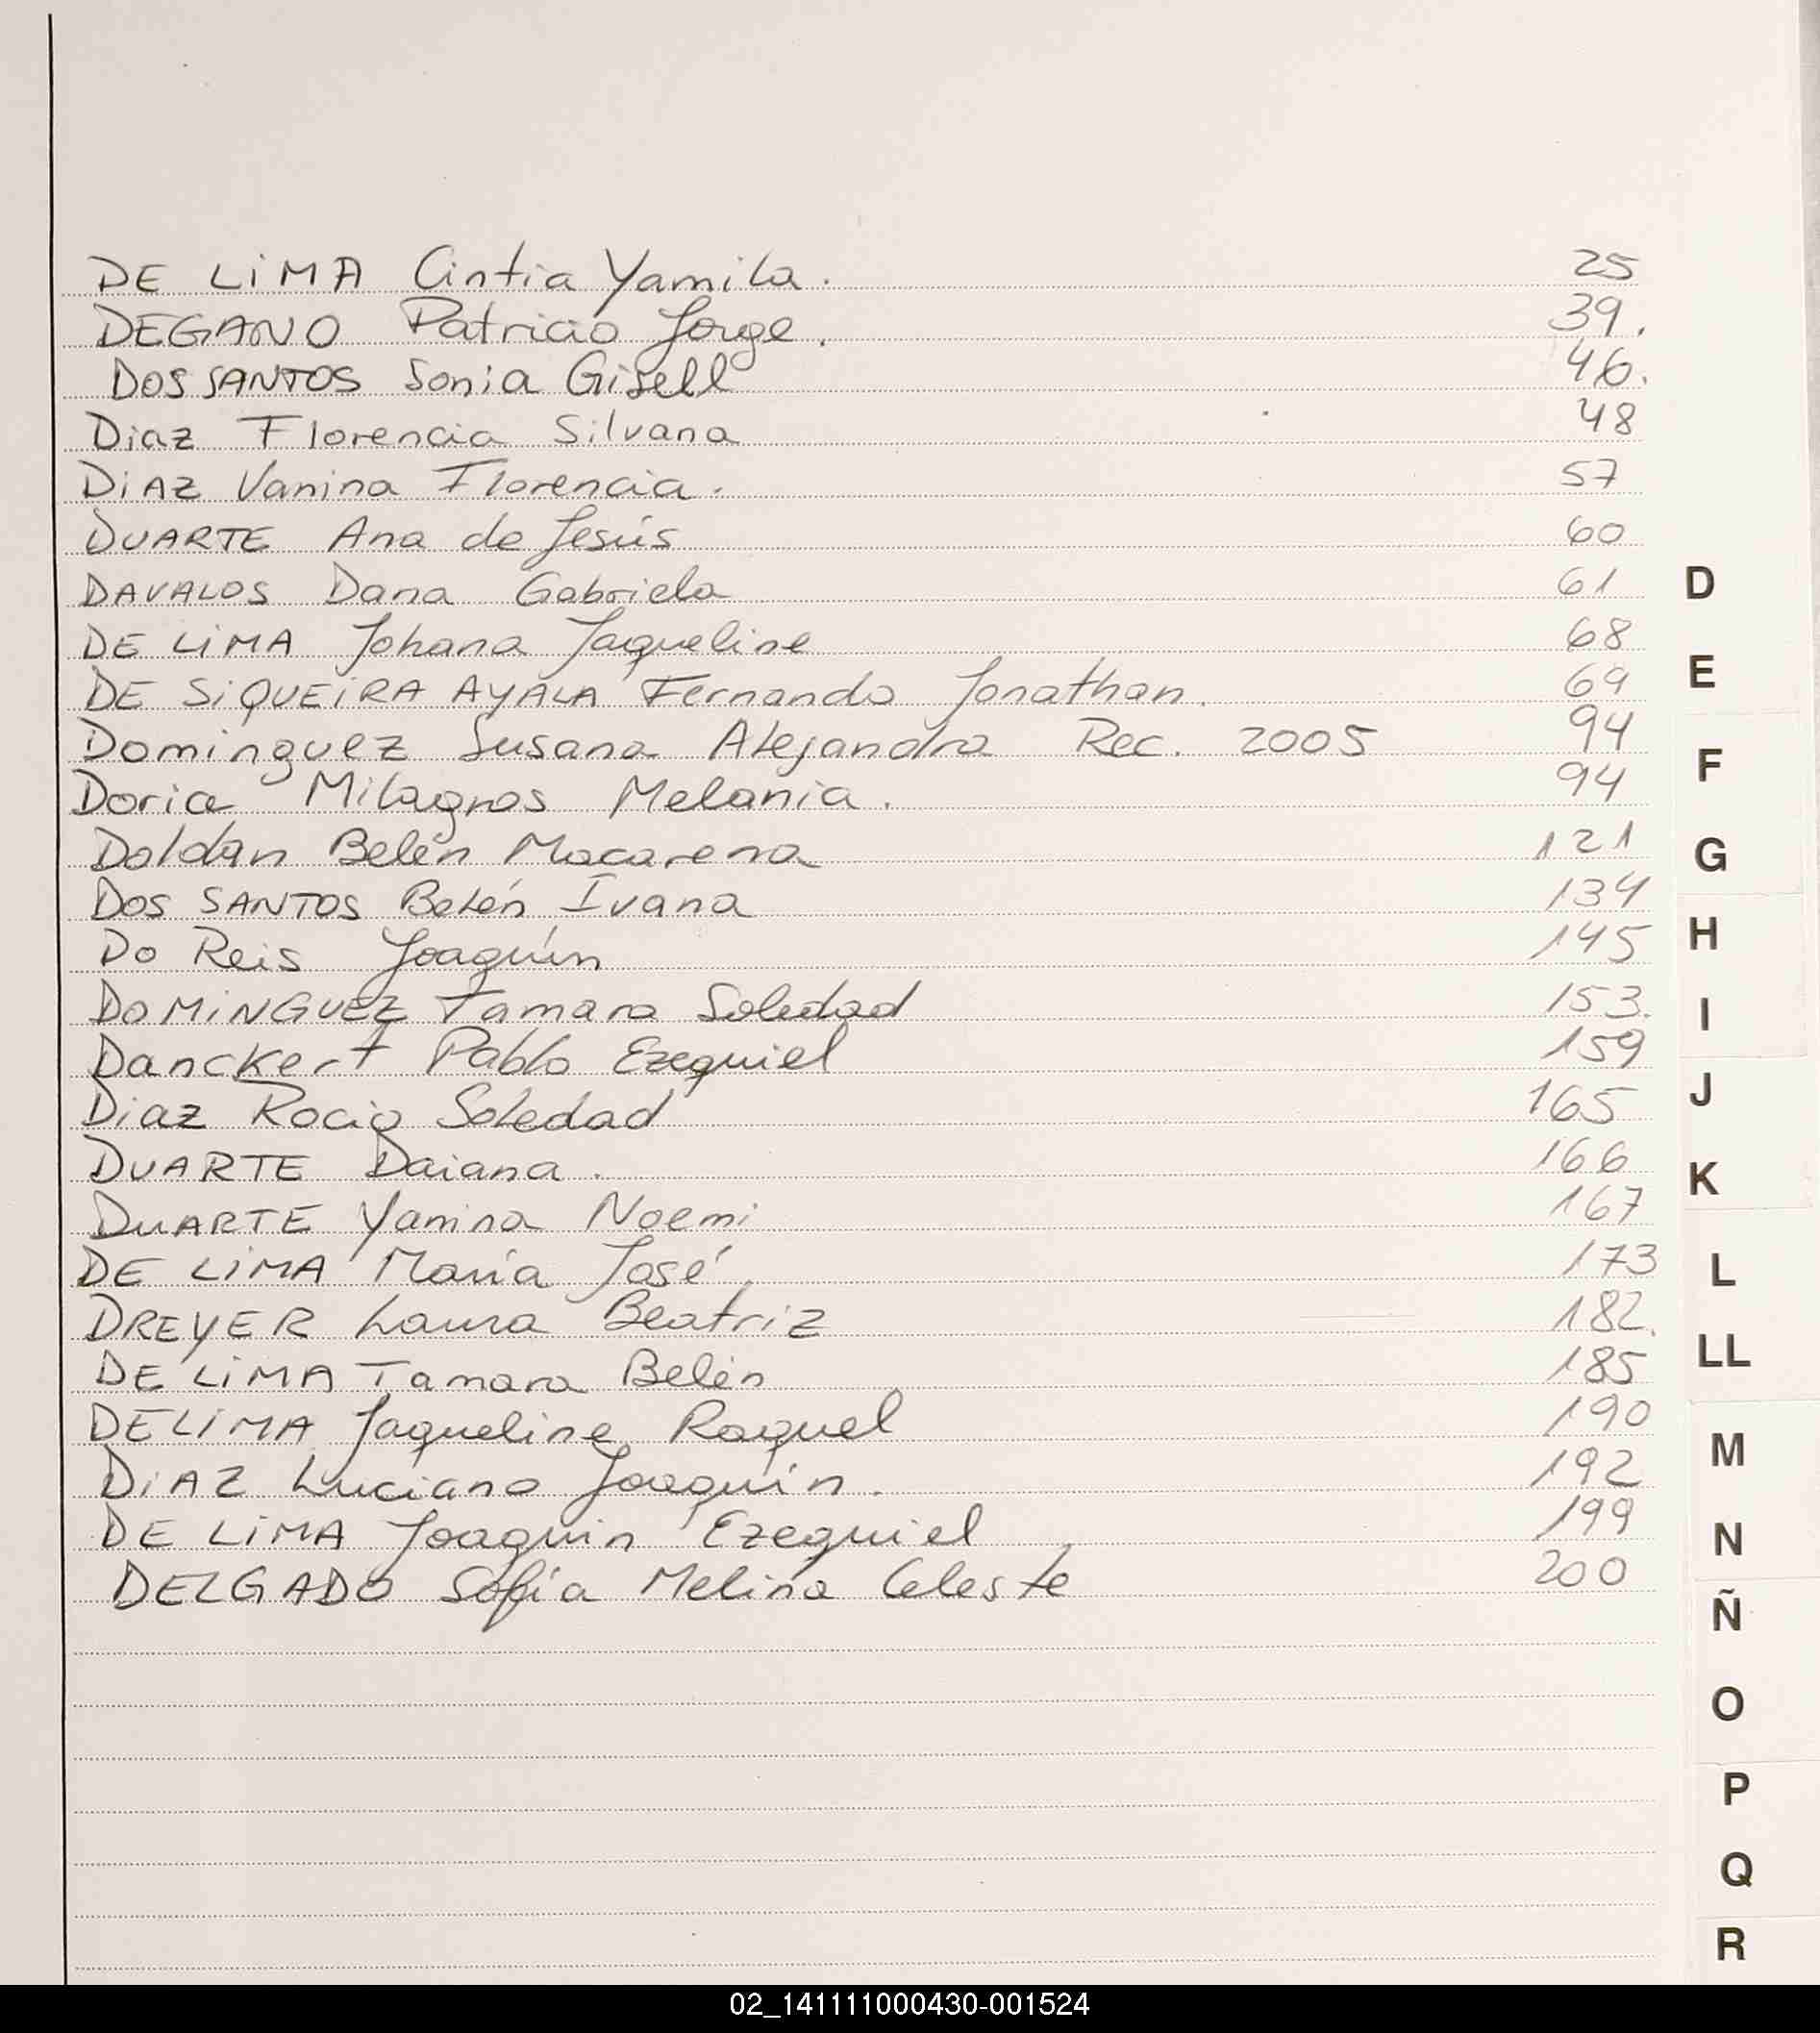 DE LIMA Cintia Yamila. 25
DEGANO Patricio Jorge. 39.
DOS SANTOS Sonia Gisell 46.
Diaz Florencia Silvana 48
DIAZ Vanina Florencia. 57
DUARTE Ana de Jesús 60
DAVALOS Dana Gabriela 61
DE LIMA Johana Jaqueline 68
DE SIQUEIRA AYALA Fernando Jonathan. 69
Dominguez Susana Alejandra Rec. 2005 94
Doria Milagros Melania. 94
Doldán Belén Macarena 121
DOS SANTOS Belén Ivana 134
Do Reis Joaquín 145
DOMINGUEZ Tamara Soledad 153.
Danckert Pablo Ezequiel 159
Diaz Rocio Soledad 165
DUARTE Daiana. 166
DUARTE Yanina Noemi 167
DE LIMA María José. 173
DREYER Laura Beatriz 182.
DE LIMA Tamara Belén 185
DELIMA Jaqueline Raquel 190
DIAZ Luciano Joaquín. 192
DE LIMA Joaquin Ezequiel 199
DELGADO Sofía Melina Celeste 200
D
E
F
G
H
I
J
K
L
LL
M
N
Ñ
O
P
Q
R
02_141111000430-001524